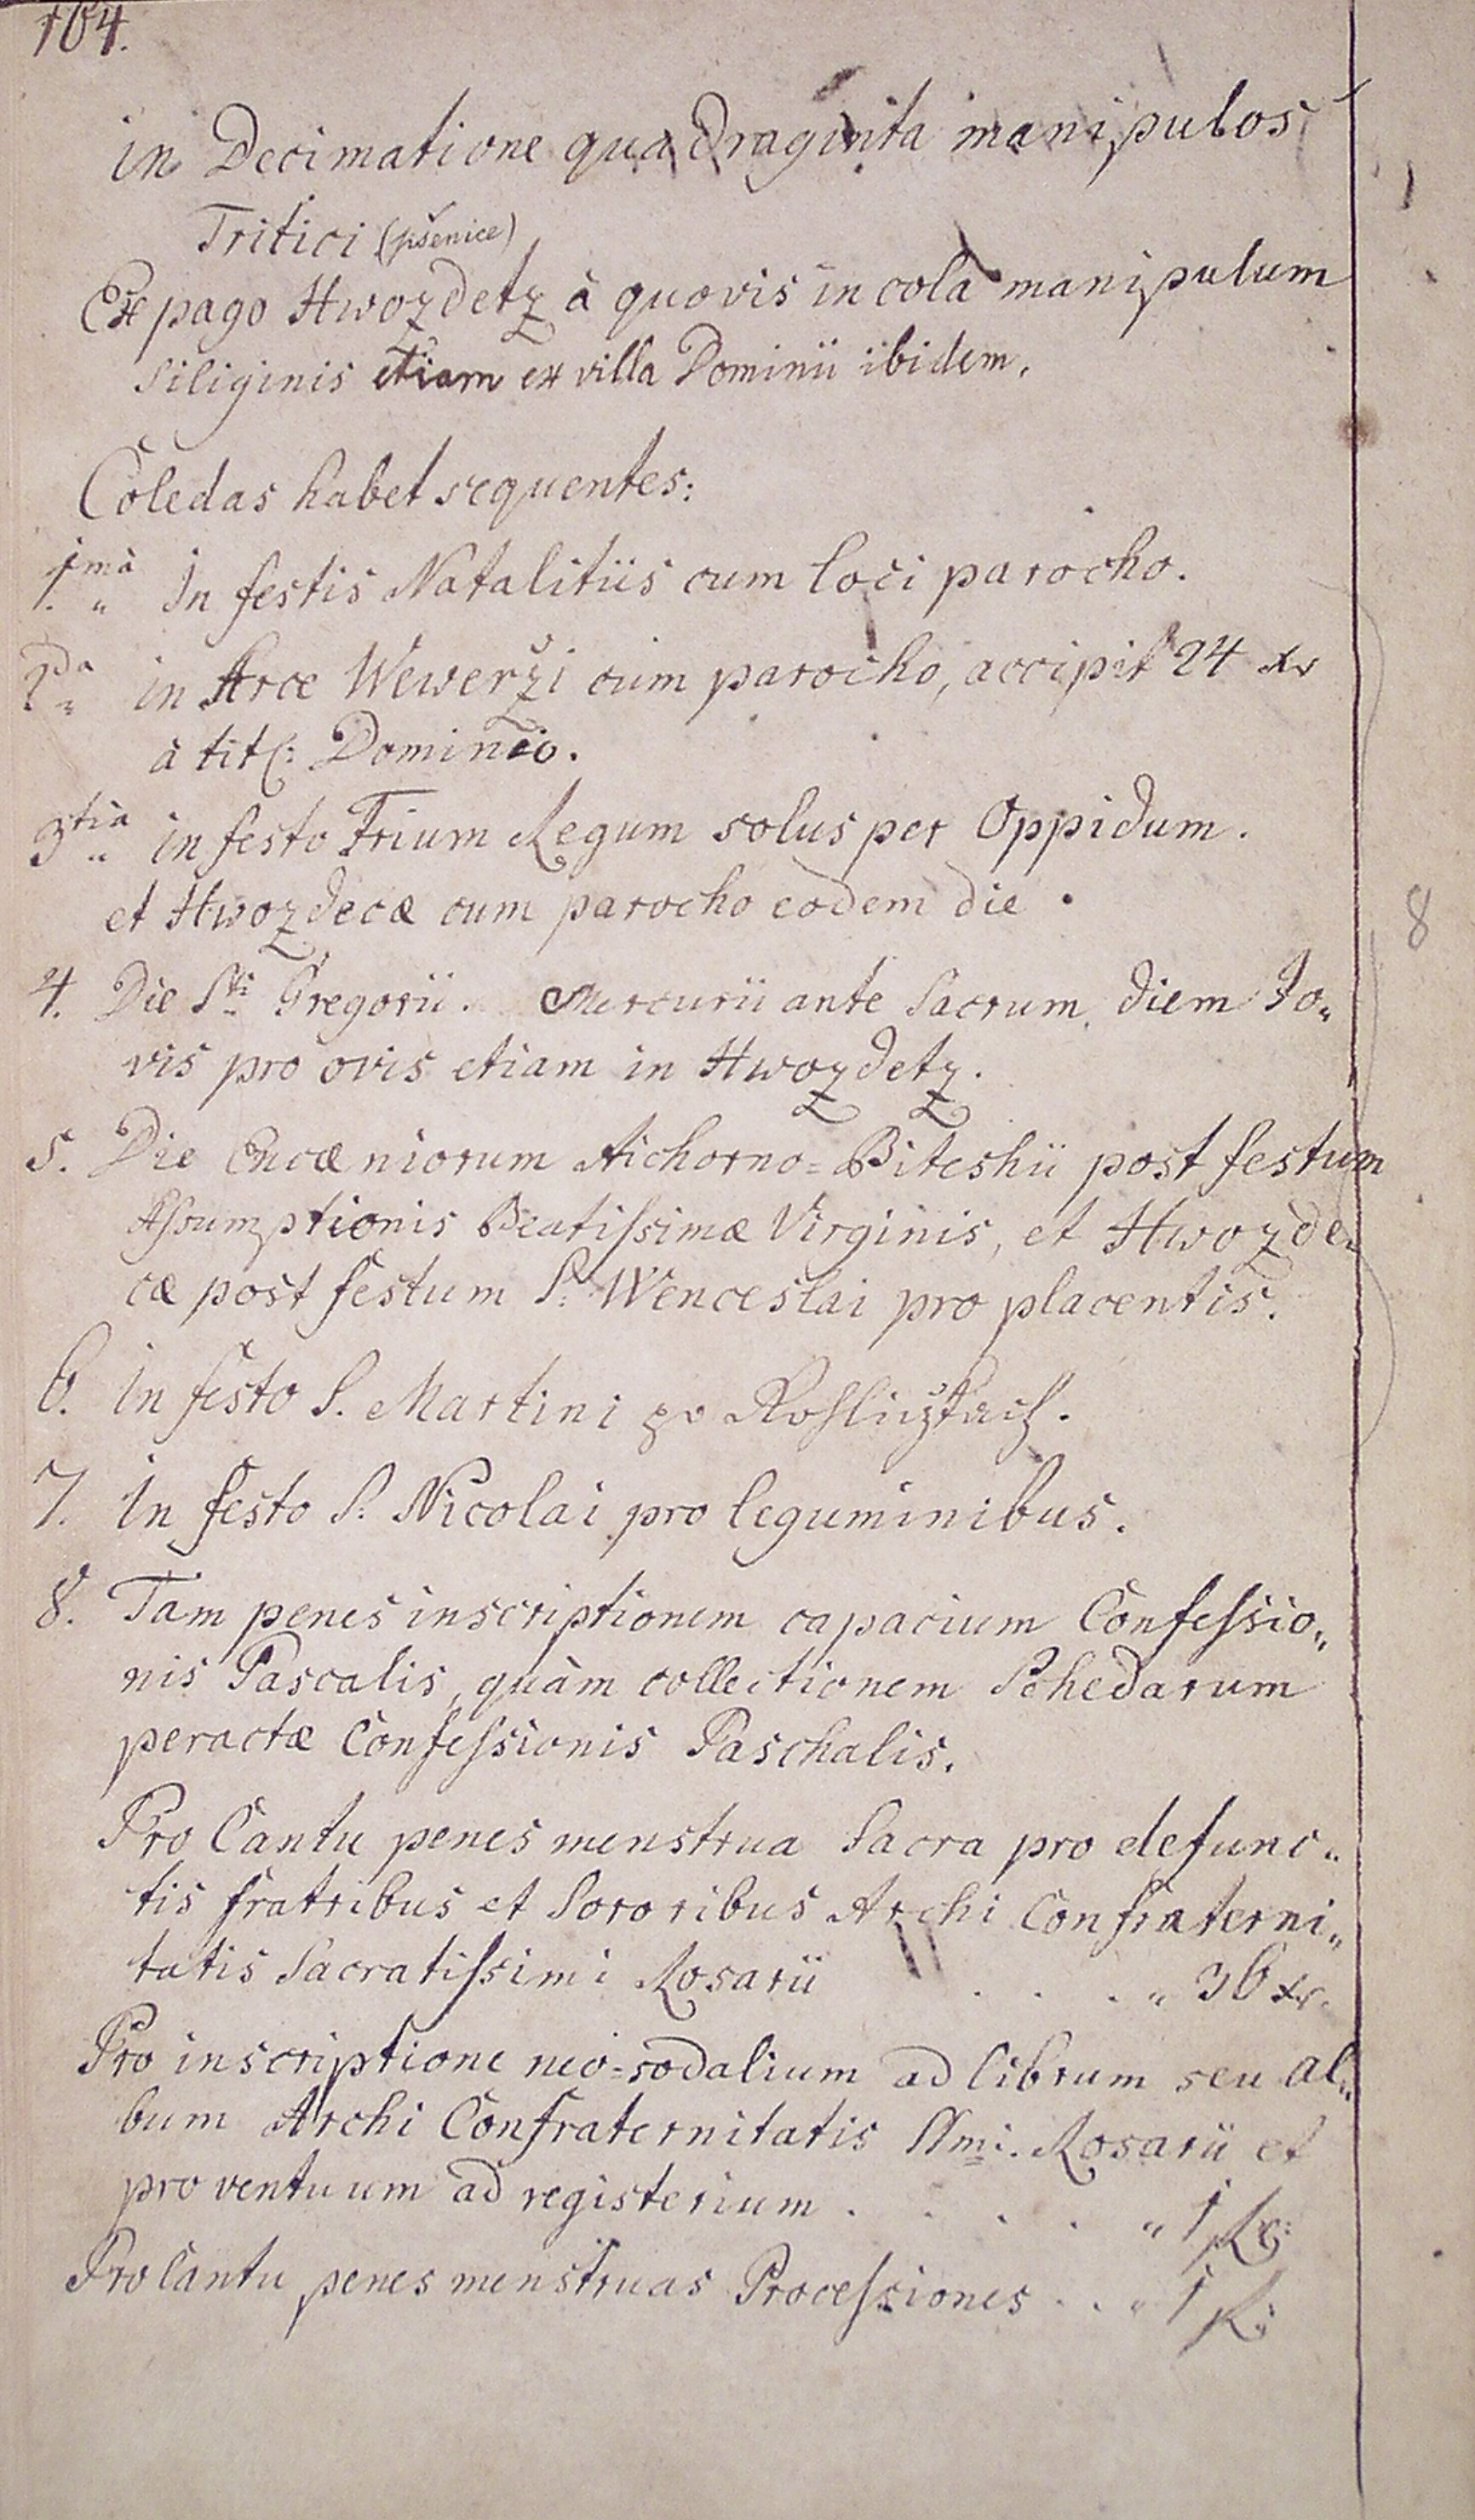 104.
in Decimatione quadraginta manipulos
Tritici (pšenice)
Ex pago Hwozdetz à quovis incola manipulum
Siliginis etiam ex villa Dominii ibidem.
Coledas habet sequentes:
1mà " In festis Natalitiis cum loci parocho.
2da " in Arce Wewerži cum parocho, accipit 24 xr
à titl: Dominio.
3tia " in festo Trium Regum solus per Oppidum.
et Hwozdecæ cum parocho eodem die.
4. Die Sti Gregorii. Mercurii ante Sacrum diem Jo„
vis pro ovis etiam in Hwozdetz.
5. Die Encæniorum Aichorno=Biteshii post festum
Assumptionis Beatissimæ Virginis, et Hwozde„
cæ post festum S: Wenceslai pro placentis.
6. in festo S. Martini po
7. in festo S. Nicolai pro leguminibus.
8. Tam penes inscriptionem capacium Confessio„
nis Pascalis, quàm collectionem Schedarum
peractæ Confessionis Paschalis.
Pro Cantu penes menstrua Sacra pro defunc„
tis fratribus et Sororibus Archi Confraterni„
tatis Sacratissimi Rosarii . . . " 36 xr.
Pro inscriptione neo=sodalium ad librum seu Al„
bum Archi Confraternitatis SSmi. Rosarii et
proventuum ad registerium . . . . " 1 fl:
Pro Cantu penes menstruas Processiones . . " 1 fl:
8